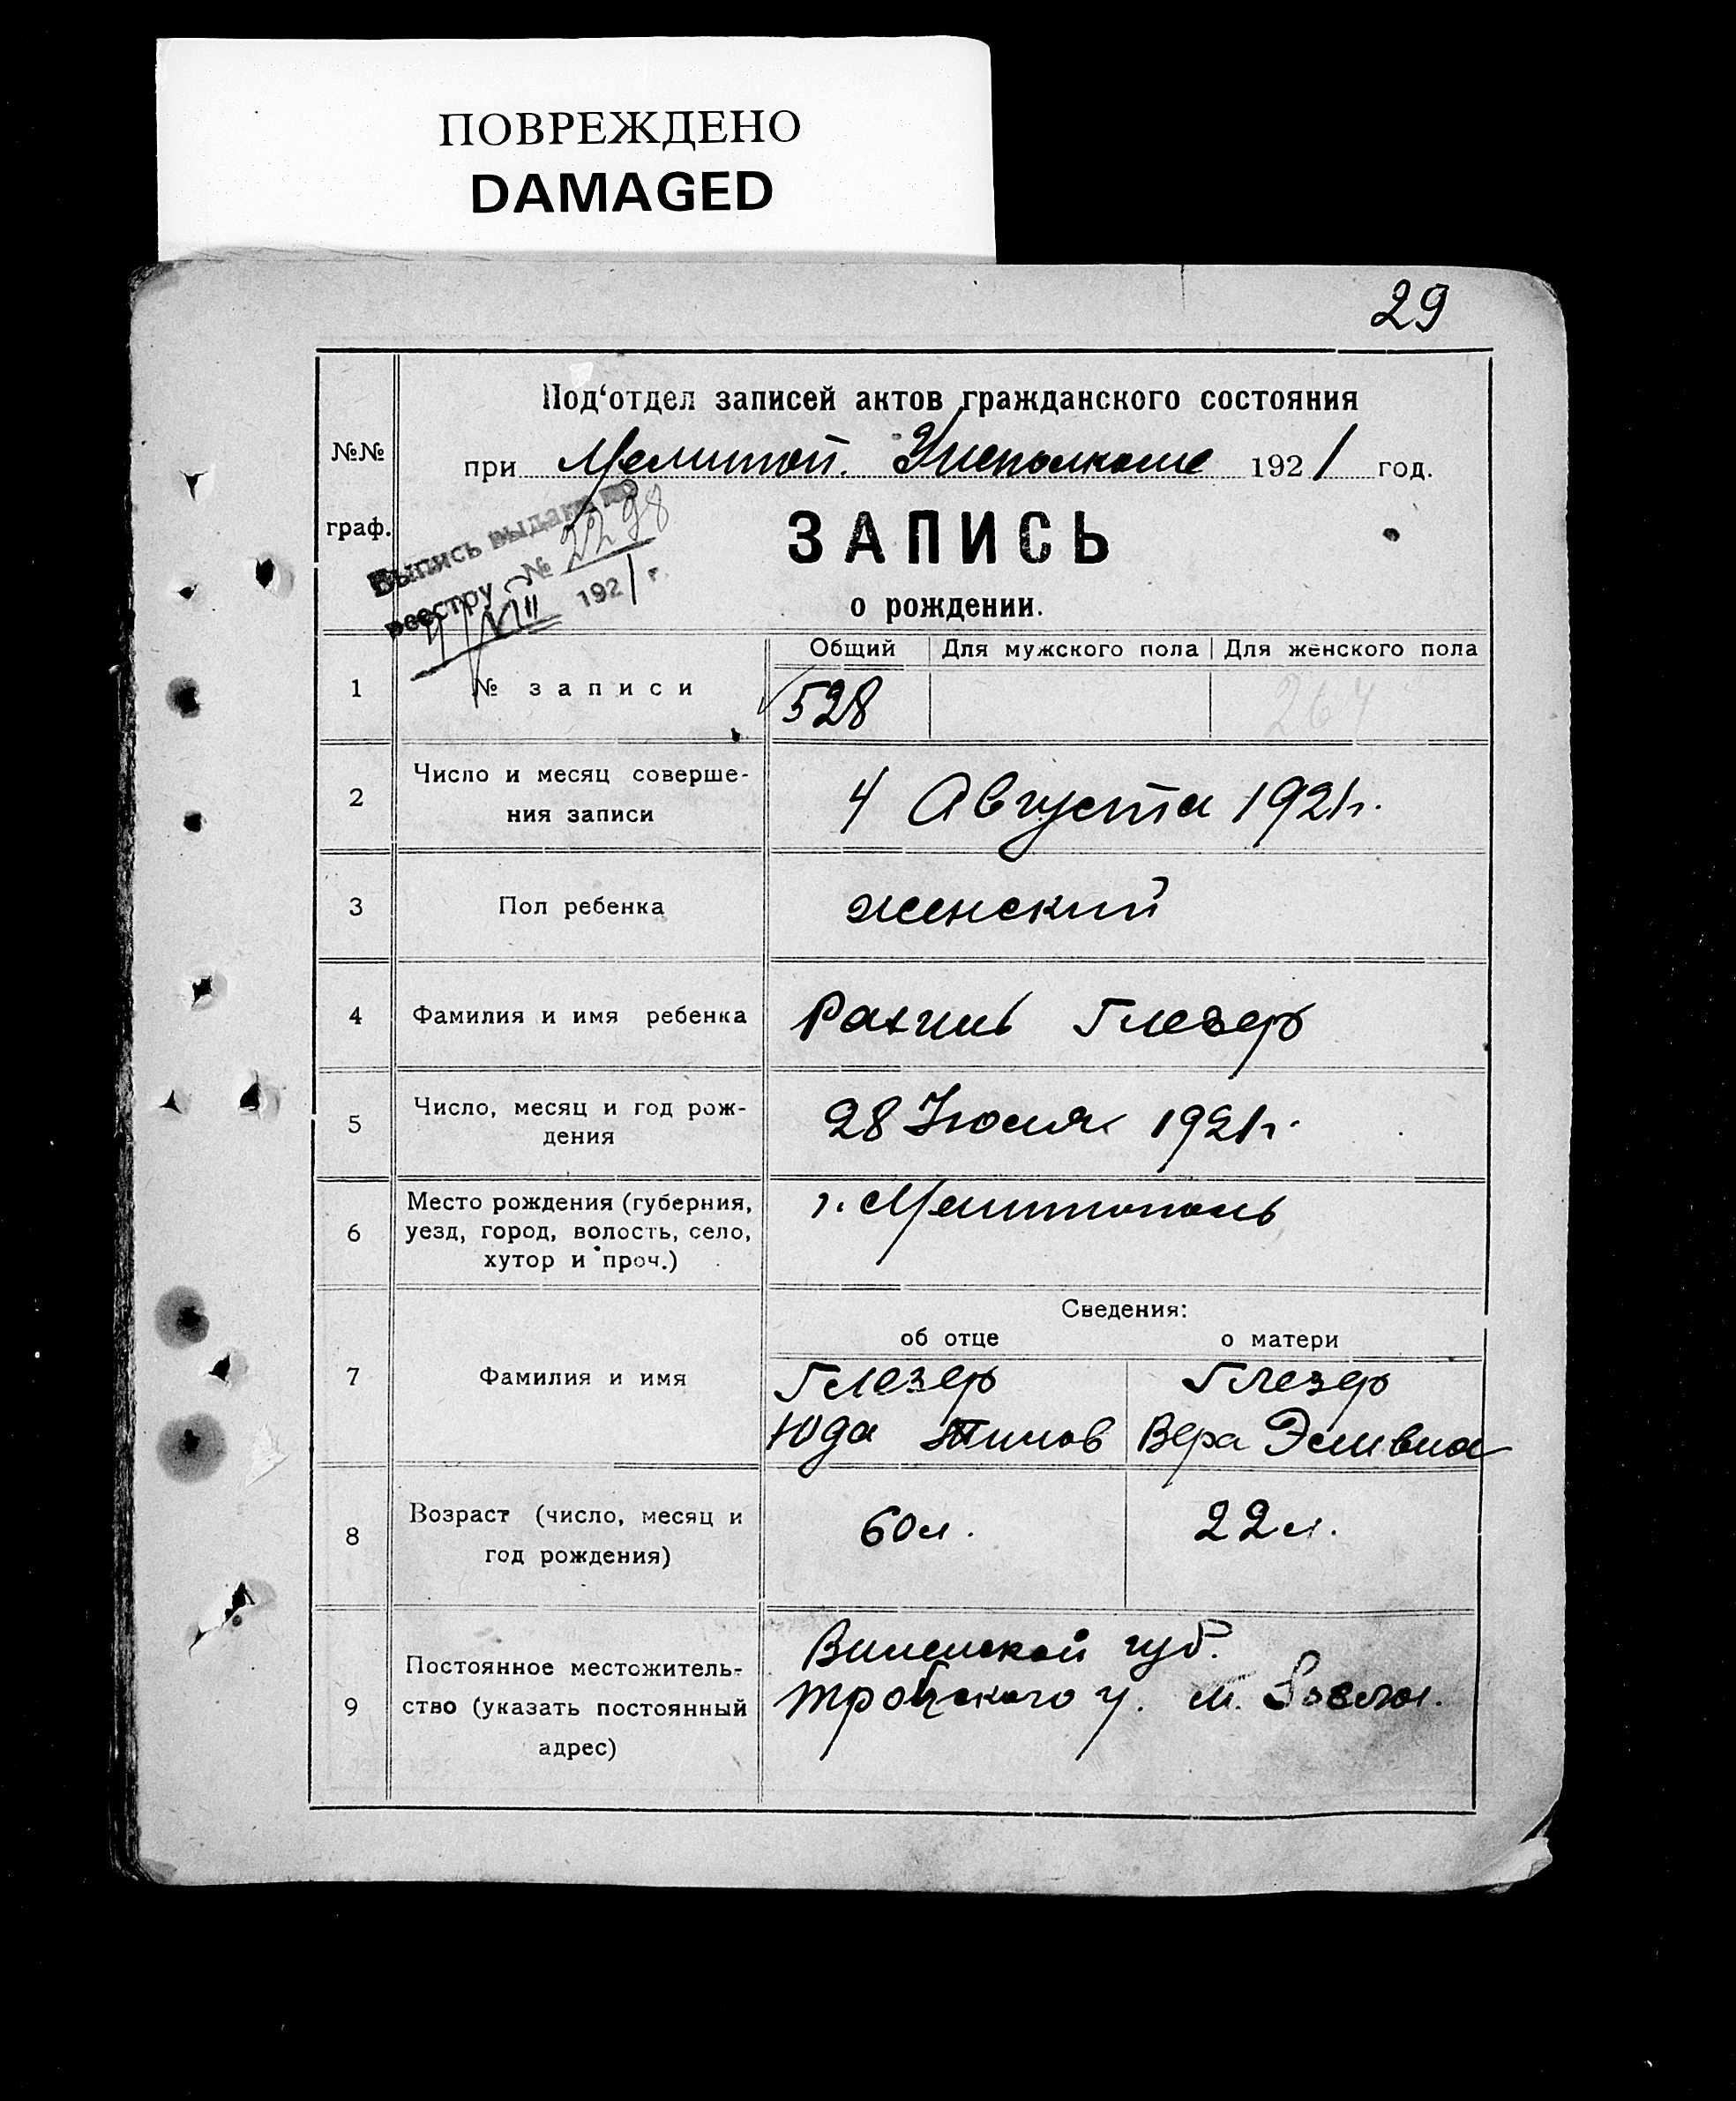 ПОВРЕЖДЕНО
DAMAGED
29
Под‘отдел записей актов гражданского состояния
№№
граф.
при Мелитоп. Уисполкоме 1921 год.
Выпись выдана по
реестру № 2298
VIII 1921 г.
ЗАПИСЬ
о рождении.
Общий Для мужского пола Для женского пола
1 № записи 528 264
2 Число и месяц соверше-
ния записи
4 Августа 1921 г.
3 Пол ребенка женский
4 Фамилия и имя ребенка Рахиль Глезер
5 Число, месяц и год рож-
дения
28 Июля 1921 г.
6 Место рождения (губерния,
уезд, город, волость, село,
хутор и проч.)
г. Мелитополь
Сведения:
об отце о матери
7 Фамилия и имя
Глезер Глезер
Юда Вера
8 Возраст (число, месяц и
год рождения)
60 л. 22 л.
9 Постоянное местожитель-
ство (указать постоянный
адрес)
Виленской губ.
Троцкого у. м.